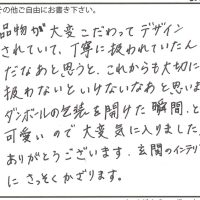 その他ご自由にお書き下さい。
品物が大変こだわってデザイン
されていて、丁寧に扱われていたん
だなあと思うと、これからも大切に
扱わないといけないなあと思いま
ダンボールの包装を開けた瞬間、と
可愛いので大変気に入りました
ありがとうございます。玄関のインテリ
にさっそくかざります。